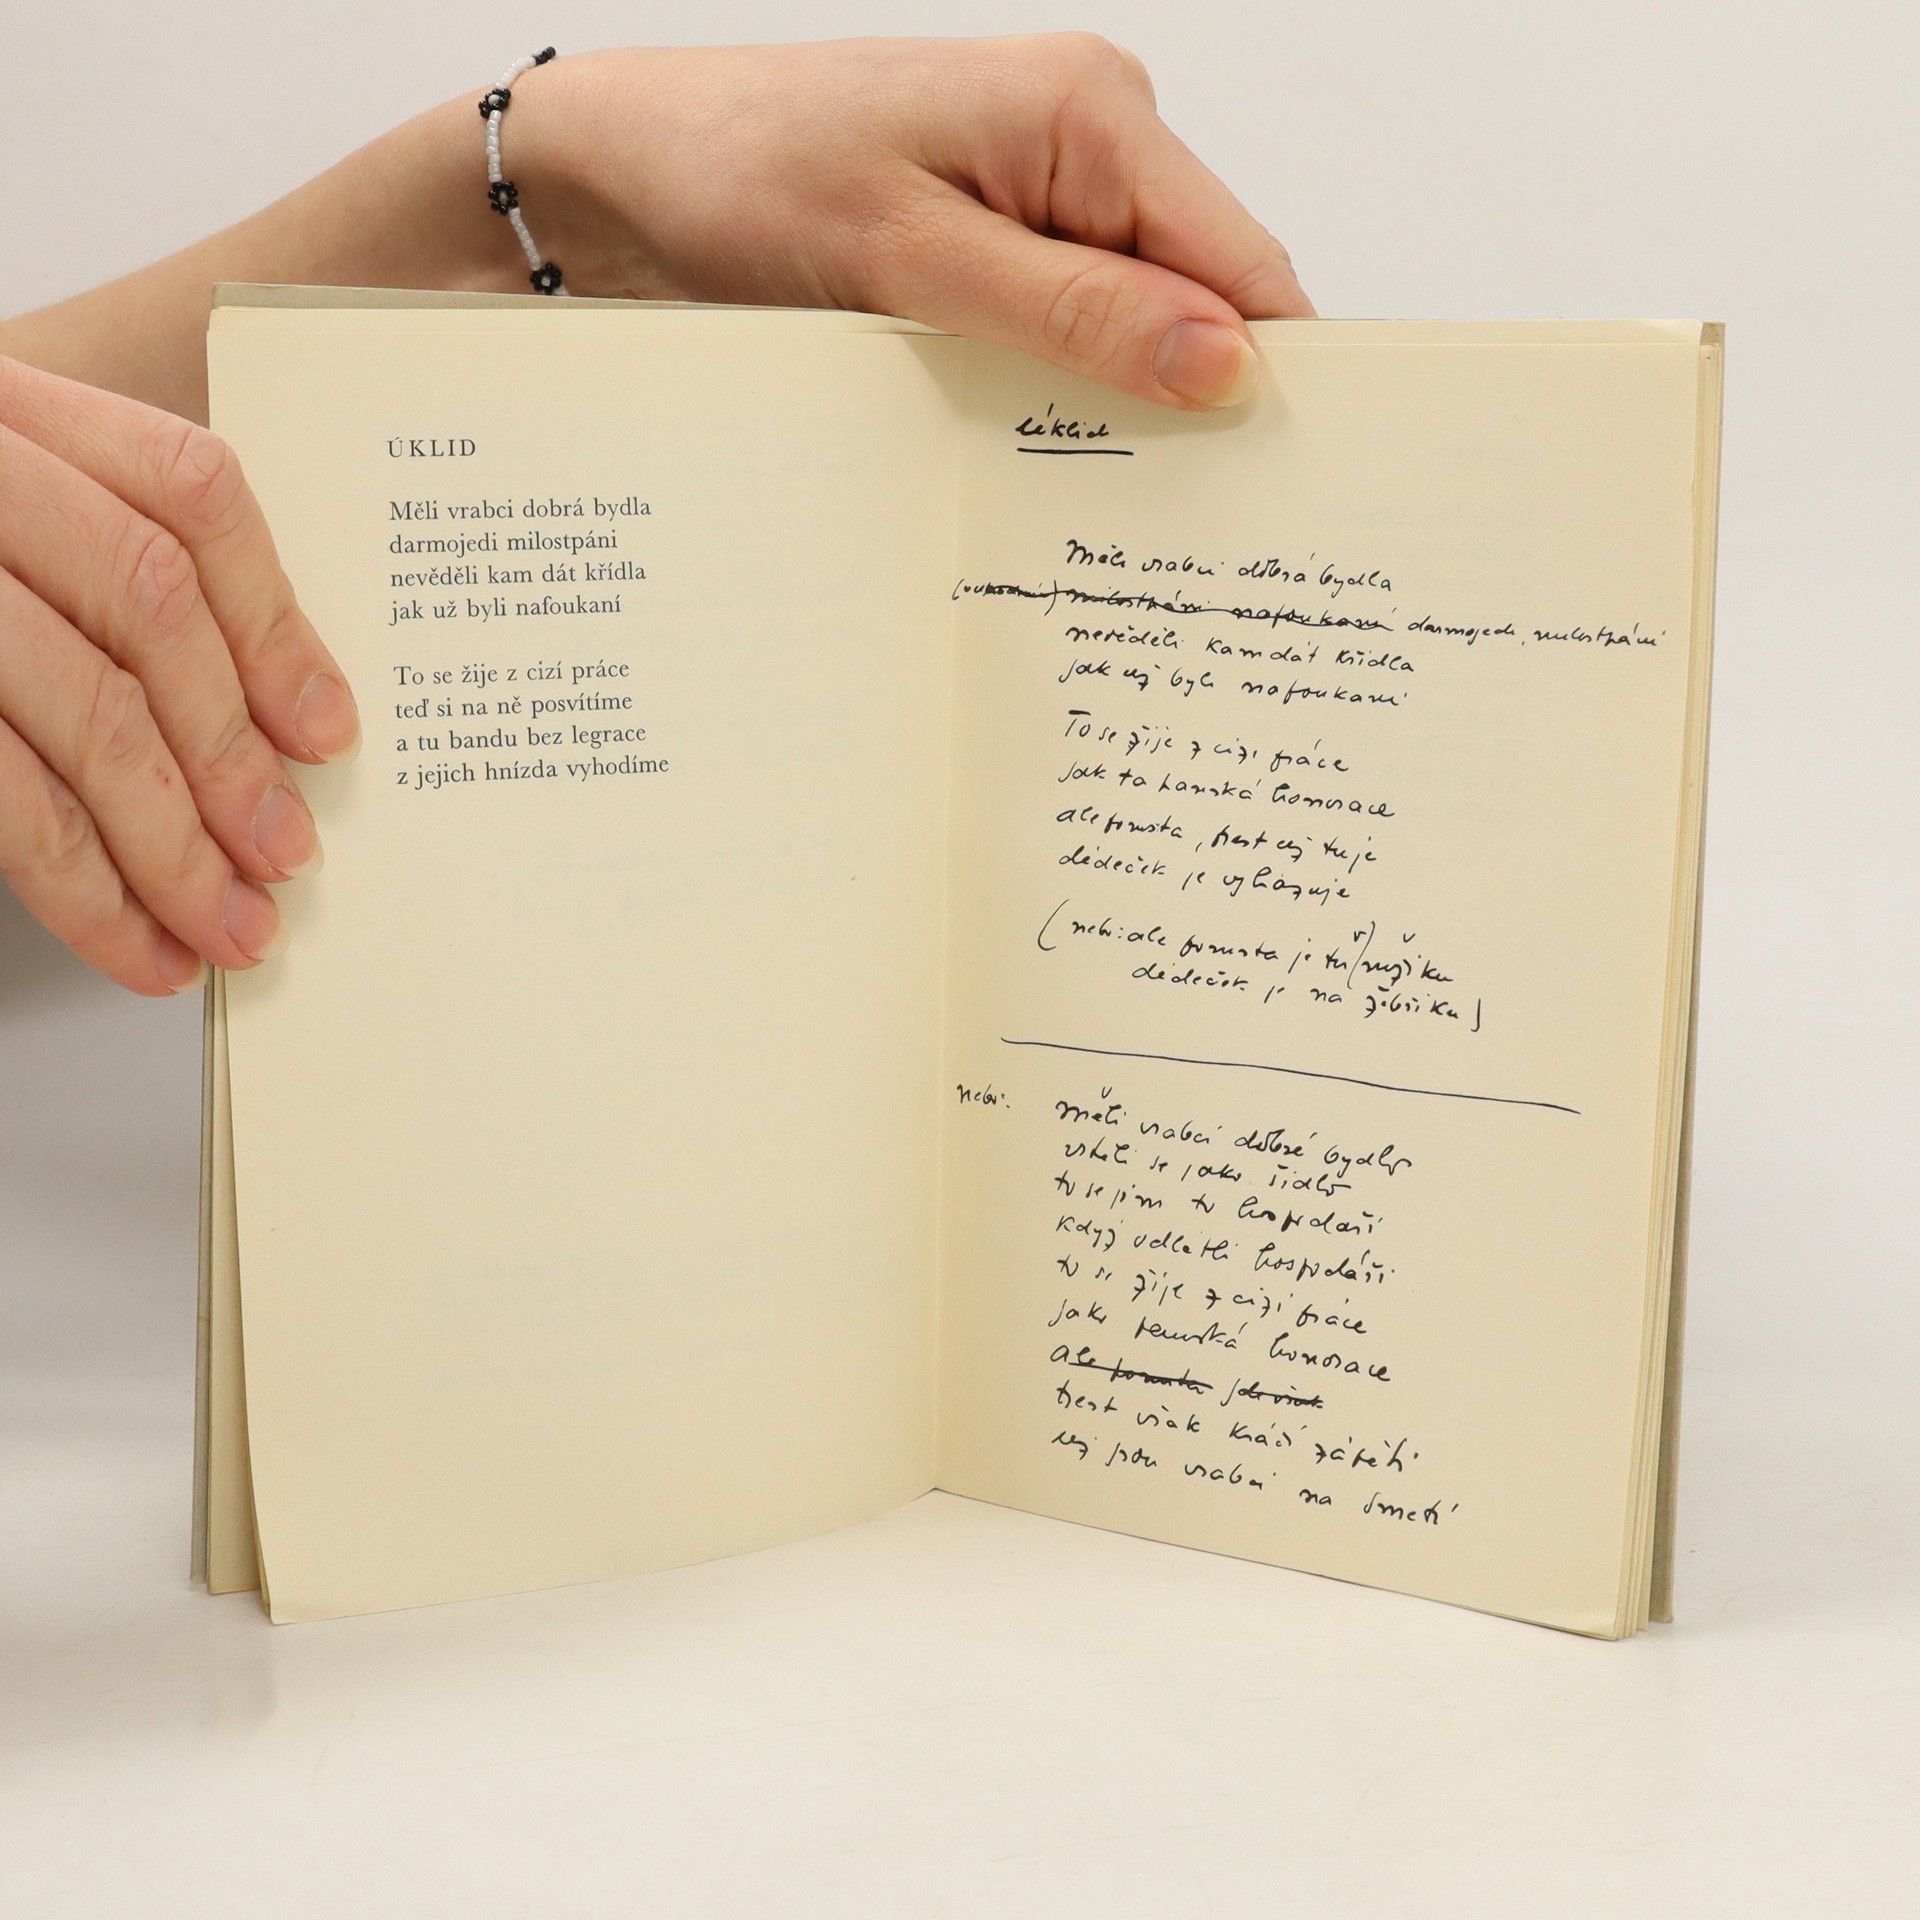 ÚKLID
Měli vrabci dobrá bydla
darmojedi milostpáni
nevěděli kam dát křídla
jak už byli nafoukaní
To se žije z cizí práce
teď si na ně posvítíme
a tu bandu bez legrace
z jejich hnízda vyhodíme
Úklid
Měli vrabci dobrá bydla
milostpáni nafoukaní darmojedi, milostpáni
nevěděli kam dát křídla
jak už byli nafoukaní
To se žije z cizí práce
jak ta panská honorace
ale pomsta, trest už tu je
dědeček je vyhazuje
(nebo: ale pomsta je tu v mžiku
dědeček je na žebříku)
nebo:
Měli vrabci dobré bydlo
vrtěli se jako šídlo
to se jim to hospodaří
když odletli hospodáři
to se žije z cizí práce
jako panská honorace
ale pomsta jde však
trest však kráčí zápětí
už jsou vrabci na smetí